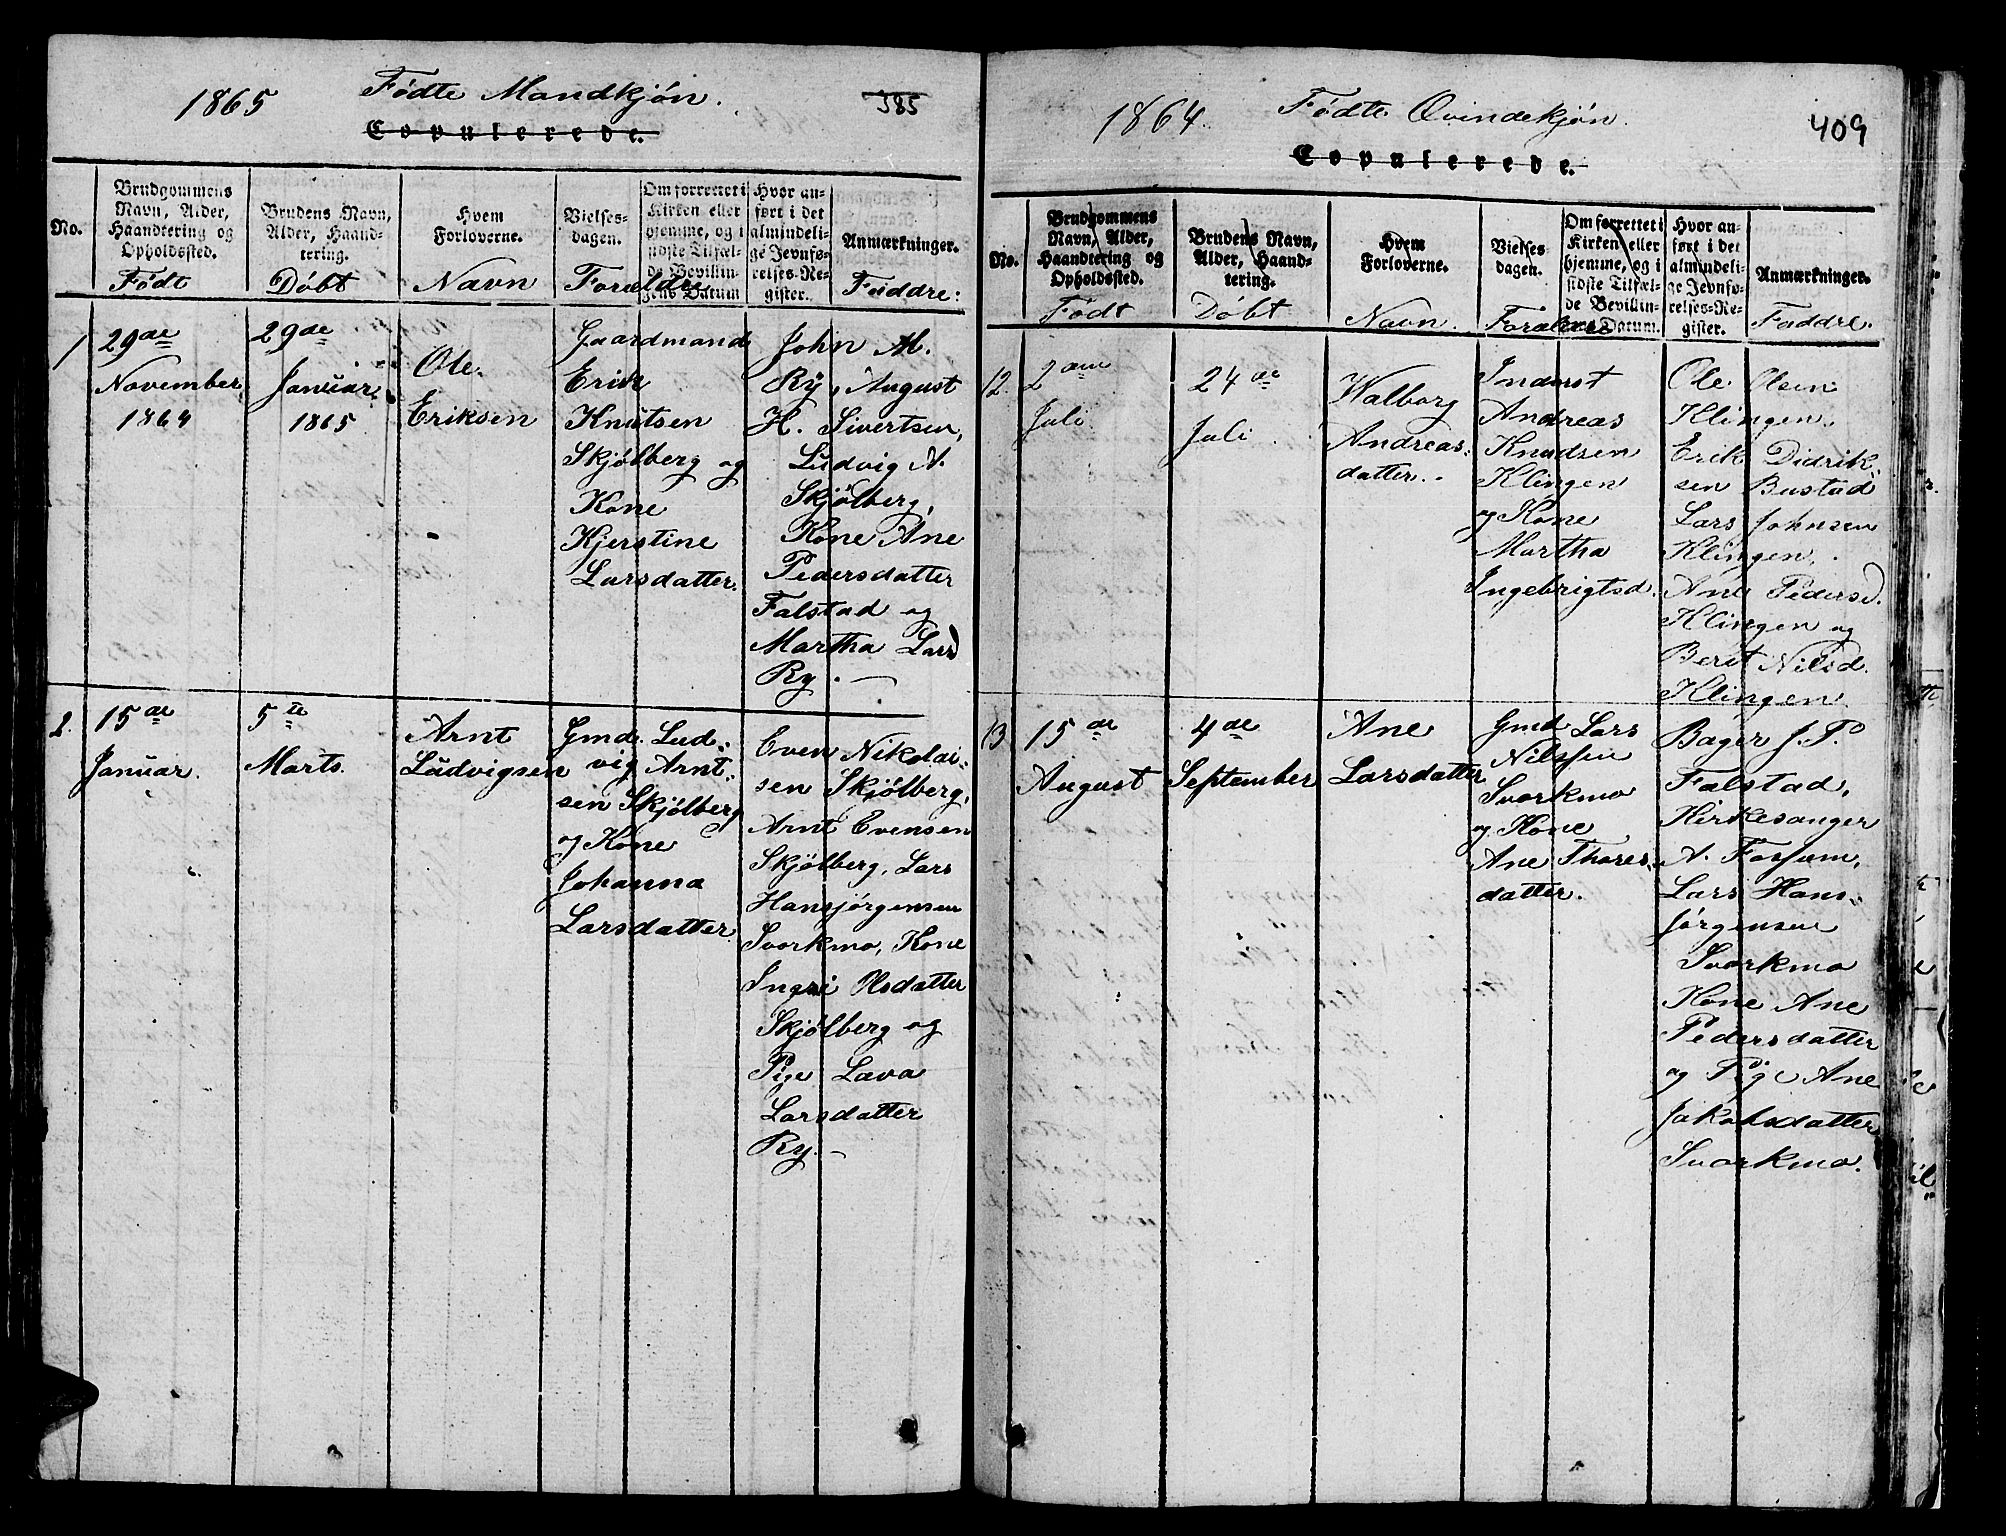 1865 Fødte Mandkjøn. 385
Copulerede.
No.
Brudgommens
Navn, Alder,
Haandtering og
Opholdssted.
Født
Brudens Navn,
Alder, Haand-
tering.
Døbt
Hvem
Forloverne.
Navn
Vielses-
dagen.
Forældre
Om forrettet i
Kirken eller
hjemme, og i
sidste Tilfæl-
de Bevillin-
gens Datum
Hvor an-
ført i det
almindeli-
ge Jevnfø-
relses-Re-
gister.
Anmærkninger.
Faddre:
1
29de
November
1864
29de
Januar
1865
Ole
Eriksen
Gaardmand
Erik
Knutsen
Skjølberg og
Kone
Kjerstine
Larsdatter.
John M.
Ry, August
H. Sivertsen,
Ludvig A.
Skjølberg,
Kone Ane
Pedersdatter
Falstad og
Martha Larsd
Ry.
2.
15de
Januar.
5te
Marts.
Arnt
Ludvigsen
Gmd. Lud-
vig Arnt-
sen Skjølberg
og Kone
Johanna
Larsdatter
Even Nikolai-
sen Skjølberg,
Arnt Evensen
Skjølberg, Lars
Hansjørgensen
Svorkmo, Kone
Ingri Olsdatter
Skjølberg og
Pige Lava
Larsdatter
Ry.
1864. Fødte Qvindekjøn. 409
Copulerede.
No.
Brudgommens
Navn, Alder,
Haandtering og
Opholdssted.
Født
Brudens Navn,
Alder, Haand-
tering.
Døbt
Hvem
Forloverne.
Navn.
Vielses-
dagen.
Forældre
Om forrettet i
Kirken eller
hjemme, og i
sidste Tilfæl-
de Bevillin-
gens Datum.
Hvor an-
ført i det
almindeli-
ge Jevnfø-
relses-Re-
gister.
Anmærkninger.
Faddre.
12.
2den
Juli
24de
Juli.
Walborg
Andreas-
datter.
Inderst
Andreas
Knudsen
Klingen
og Kone
Martha
Ingebrigtsd.
Ole Olsen
Klingen,
Erik Didrik-
sen Bustad
Lars Johnsen
Klingen,
Ane Pedersd.
Klingen og
Berit Nilsd.
Klingen
13
15de
August
4de
September
Ane
Larsdatter
Gmd Lars
Nilssen
Svorkmo
og Kone
Ane Thores-
datter.
Bager J. P.
Falstad,
Kirkesanger
A. Fossem,
Lars Hans-
jørgensen
Svorkmo
Kone Ane
Pedersdatter
og Pige Ane
Jakobsdatter
Svorkmo.